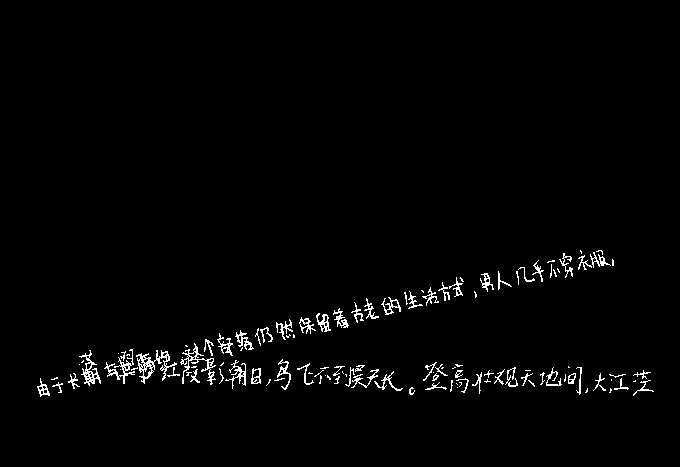 由于长期与世隔绝,整个部落仍然保留着古老的生活方式,男人几乎不穿衣服,
翠影红霞影朝日,鸟飞不到吴天长。登高壮观天地间,大江茫